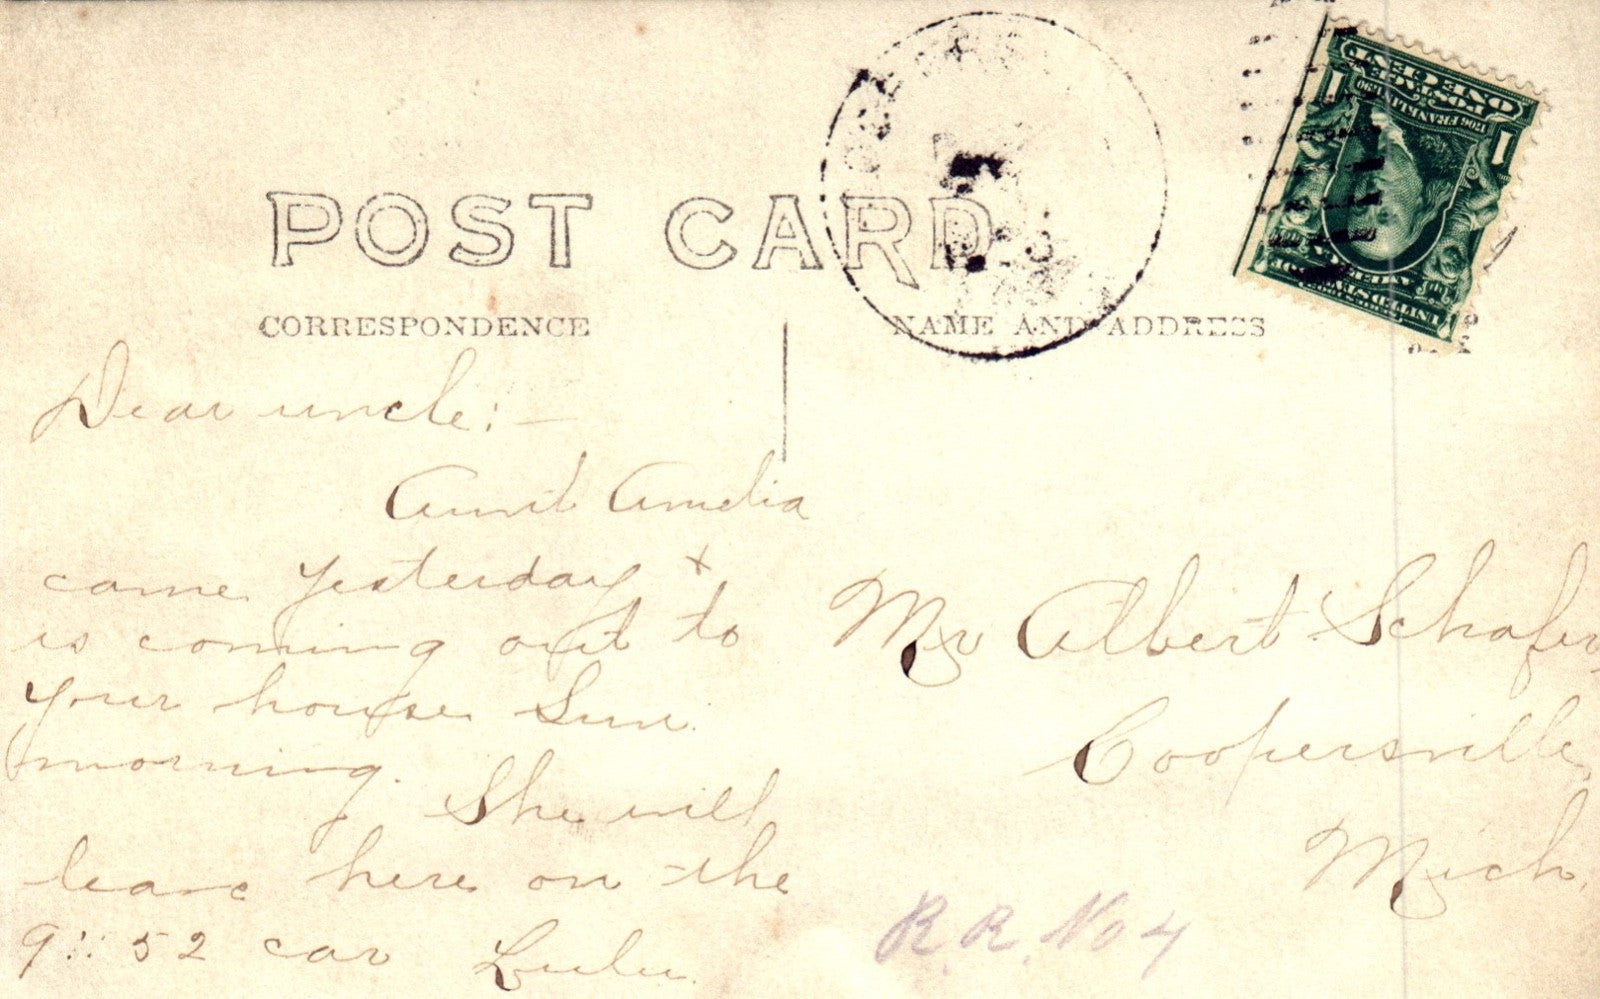 POST CARD
CORRESPONDENCE
NAME AND ADDRESS
ONE CENT
POSTAGE
1706 FRANKLIN 1790
1 1
UNITED STATES OF AMERICA
Dear uncle:—
Aunt Amelia
came yesterday +
is coming out to
your house Sun.
morning. She will
leave here on the
9:52 car Lulu
Mr Albert Schafer
Coopersville,
Mich.
R.R. No 4